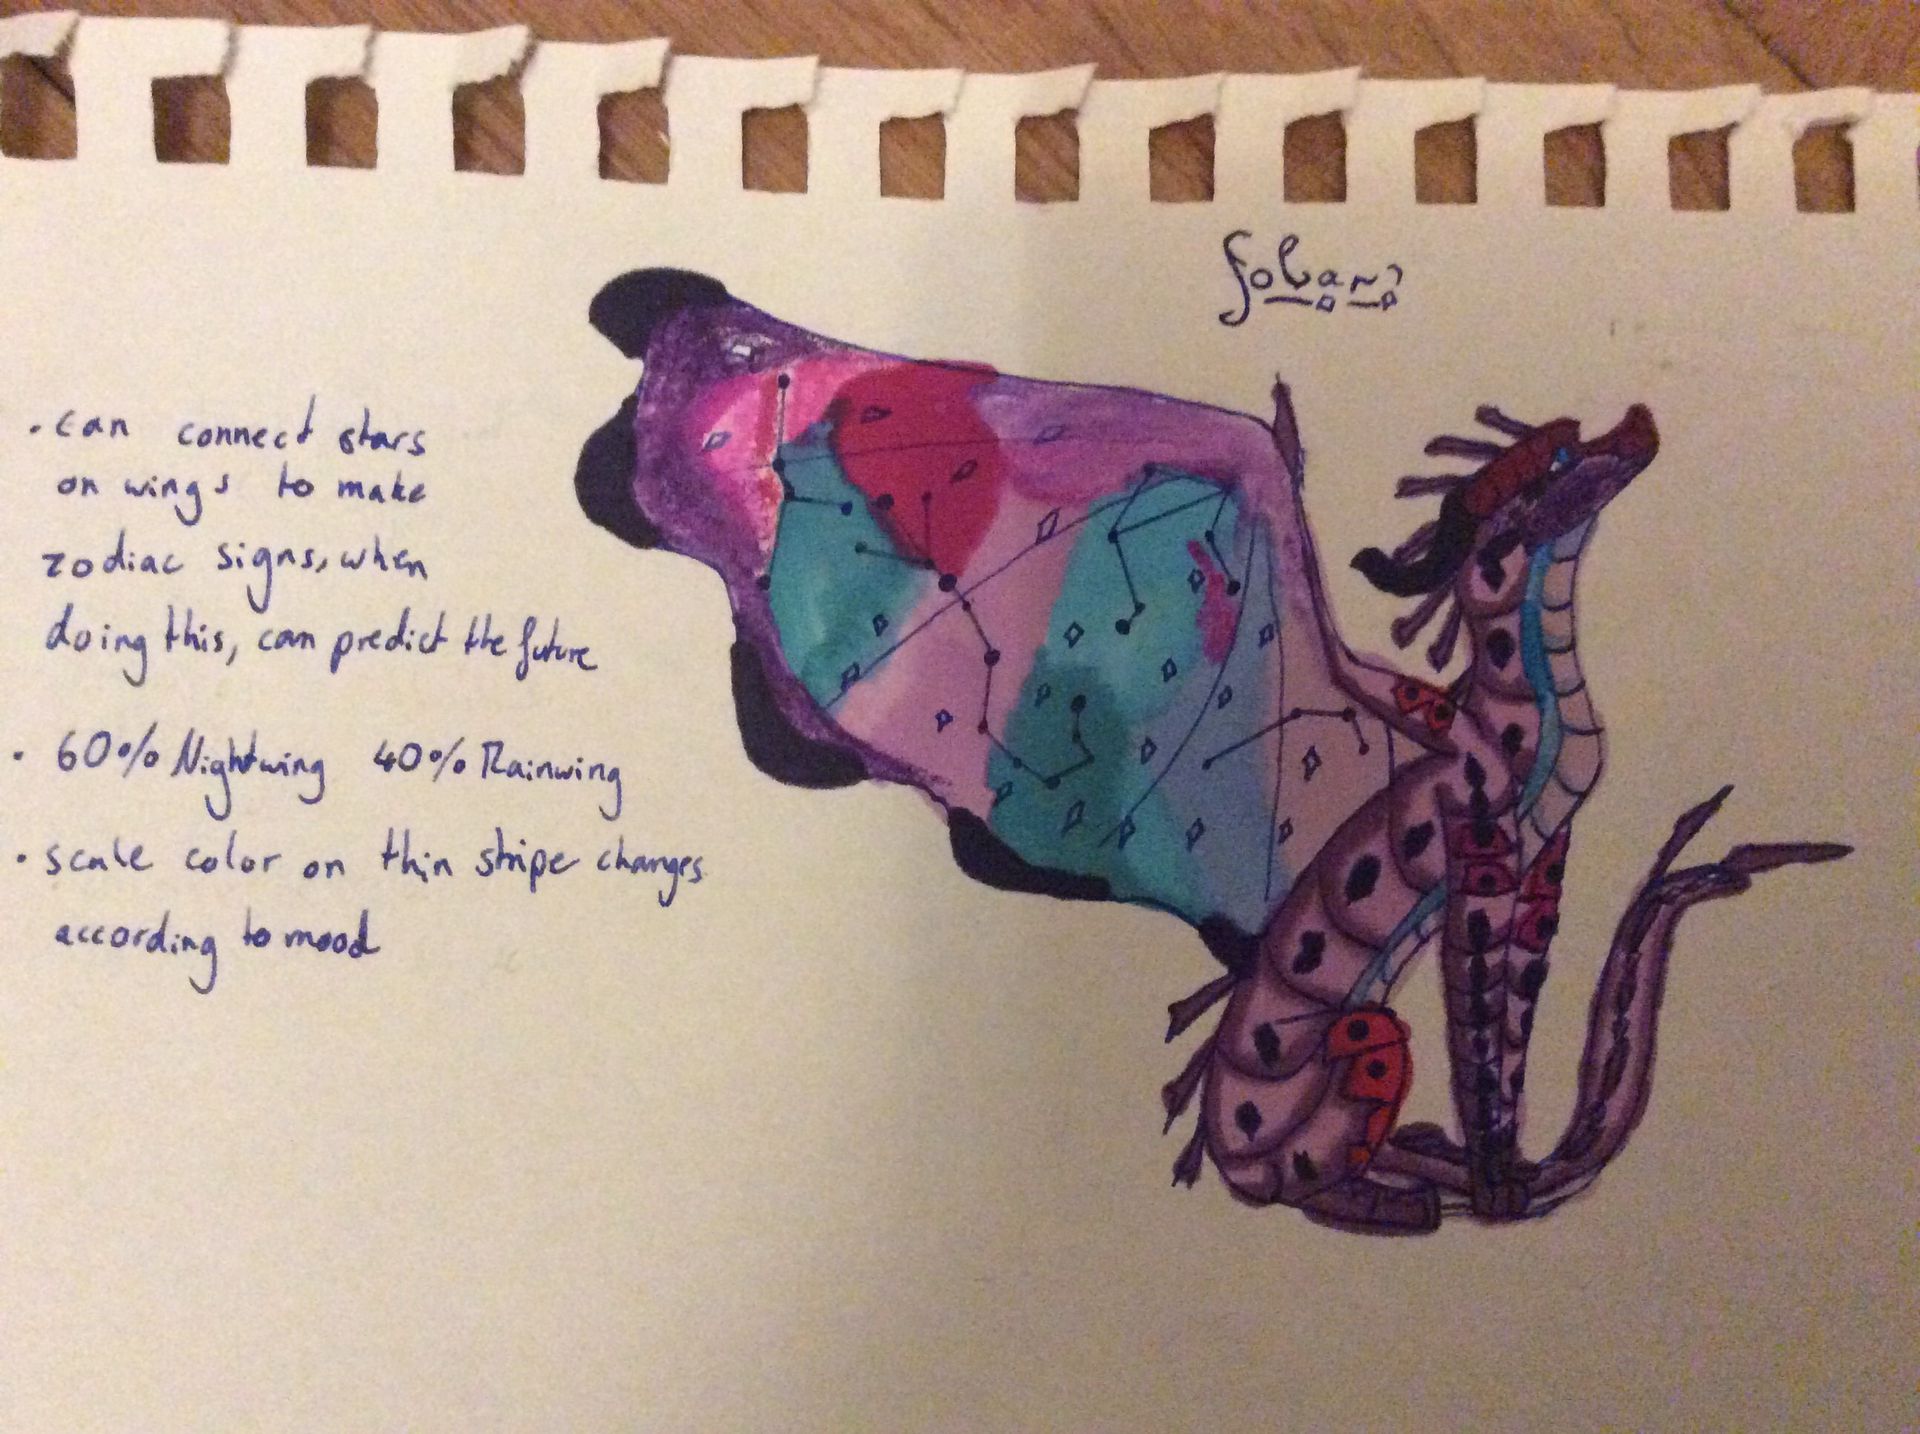 · can connect stars
on wings to make
zodiac signs, when
doing this, can predict the future
· 60% Nightwing 40% Rainwing
· scale color on thin stripe changes
according to mood